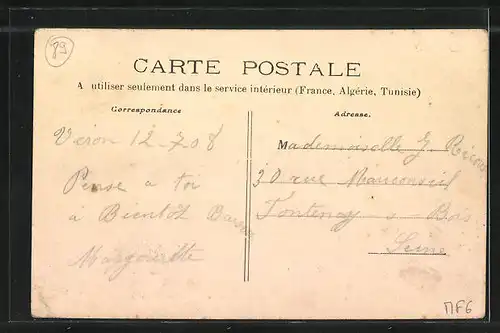 89
CARTE POSTALE
A utiliser seulement dans le service intérieur (France, Algérie, Tunisie)
Correspondance
Adresse.
Veron 12-7-08
Pense a toi
à Bientôt
Margouritte
Mademoiselle J.
30 rue Mauconseil
Fontenay - s - Bois
Seine
MF6